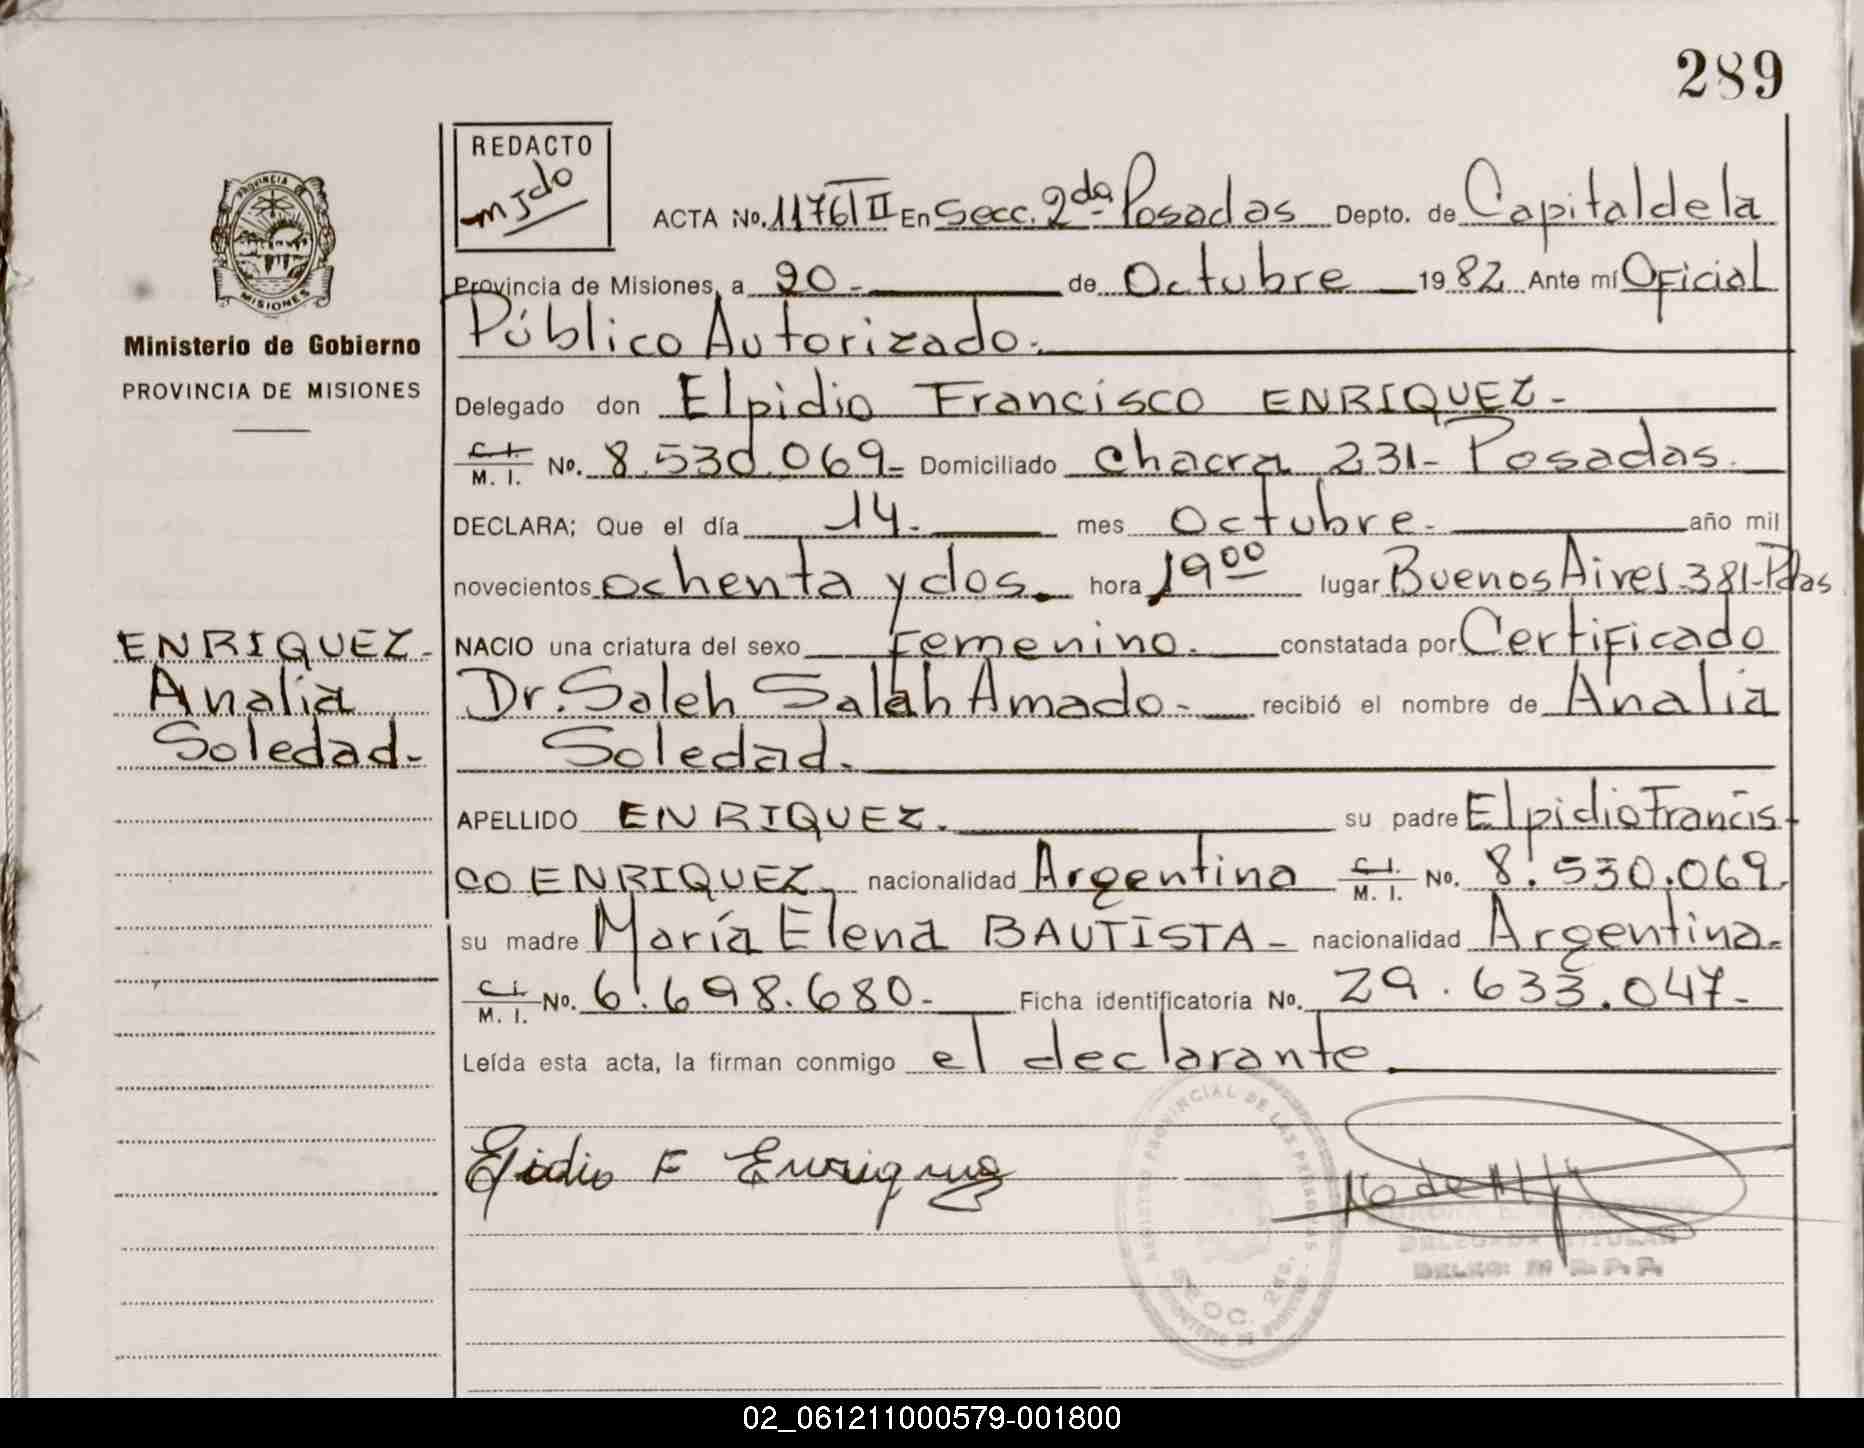 289
REDACTO
mJdo
PROVINCIA DE
MISIONES
Ministerio de Gobierno
PROVINCIA DE MISIONES
ACTA No. 1176/II En Secc. 2da Posadas Depto. de Capital de la
Provincia de Misiones, a 20.- de Octubre 1982 Ante mí Oficial
Público Autorizado.-
Delegado don Elpidio Francisco ENRIQUEZ-
C. I. / M. I. No. 8.530.069- Domiciliado chacra 231- Posadas.
DECLARA; Que el día 14.- mes Octubre.- año mil
novecientos ochenta y dos. hora 19 00 lugar Buenos Aires 381-Pdas
NACIO una criatura del sexo Femenino. constatada por Certificado
Dr. Saleh Salah Amado.- recibió el nombre de Analía
Soledad.
ENRIQUEZ-
Analía
Soledad.-
APELLIDO ENRIQUEZ. su padre Elpidio Francis-
co ENRIQUEZ, nacionalidad Argentina C. I. / M. I. No. 8.530.069.
su madre María Elena BAUTISTA- nacionalidad Argentina.
C. I. / M. I. No. 6.698.680.- Ficha identificatoria No. 29.633.047-
Leída esta acta, la firman conmigo el declarante
Elpidio F Enriquez
REGISTRO PROVINCIAL DE LAS PERSONAS
SECC. 2da.
DELEGADA TITULAR
02_061211000579-001800